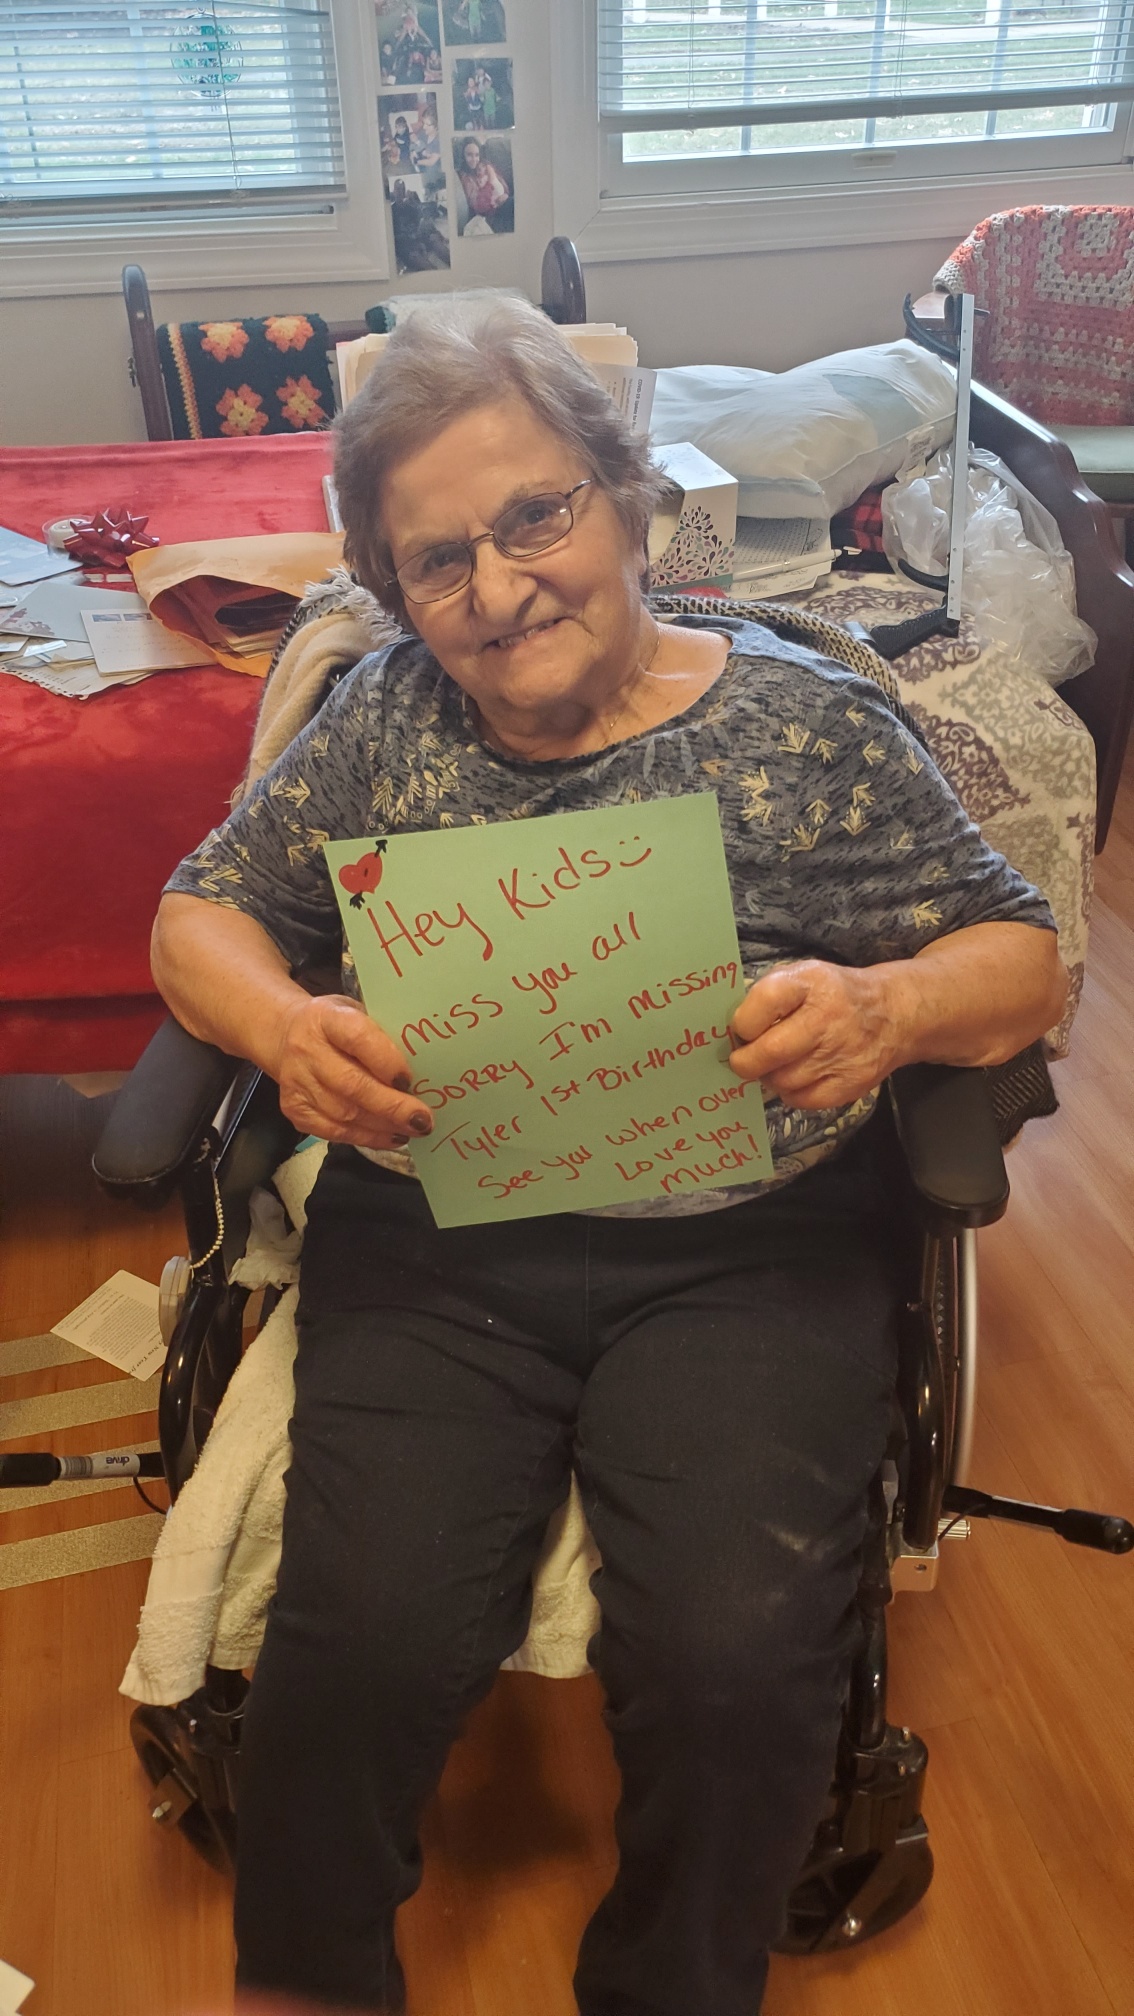 Hey Kids
miss you all
SORRY I'm missing
Tyler 1st Birthday
See you when over
Love you
much!
drive